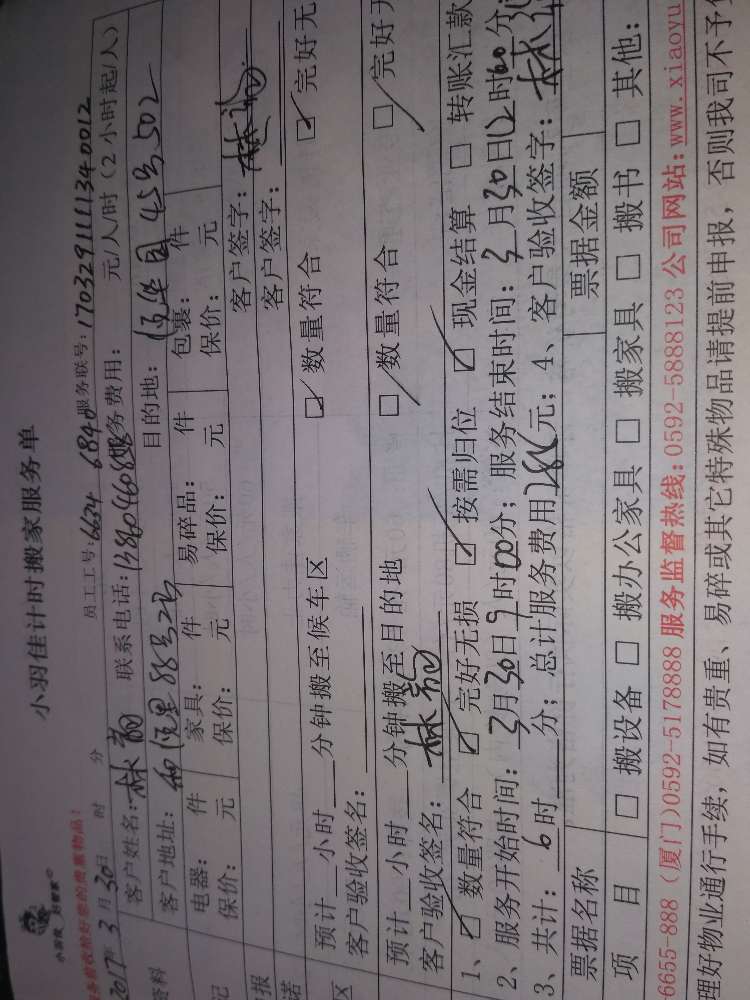 小羽佳 好管家
小羽佳计时搬家服务单
务前收拾好您的贵重物品!
员工工号: 6634 6840 服务联号: 1703291111340012
2017年3月30日 时 分
元/人/时 (2小时起/人)
客户姓名: 林 联系电话: 务费用:
客户地址: 目的地: 45号502
电器: 件 家具: 件 易碎品: 件 包裹: 件
保价: 元 保价: 元 保价: 元 保价: 元
客户签字: 林
客户签字:
预计 小时 分钟搬至候车区 ☑ 数量符合 ☑ 完好无
客户验收签名:
预计 小时 分钟搬至目的地 □ 数量符合 □ 完好无
客户验收签名: 林
1、☑ 数量符合 ☑ 完好无损 ☑ 按需归位 ☑ 现金结算 □ 转账汇款
2、服务开始时间: 3月30日9时00分; 服务结束时间: 3月30日 时 分
3、共计: 6时 分; 总计服务费用 元; 4、客户验收签字: 林
票据名称 票据金额
项 目 □ 搬设备 □ 搬办公家具 □ 搬家具 □ 搬书 □ 其他:
6655-888 (厦门)0592-5178888 服务监督热线: 0592-5888123 公司网站: www.xiaoyu
理好物业通行手续, 如有贵重、易碎或其它特殊物品请提前申报, 否则我司不予